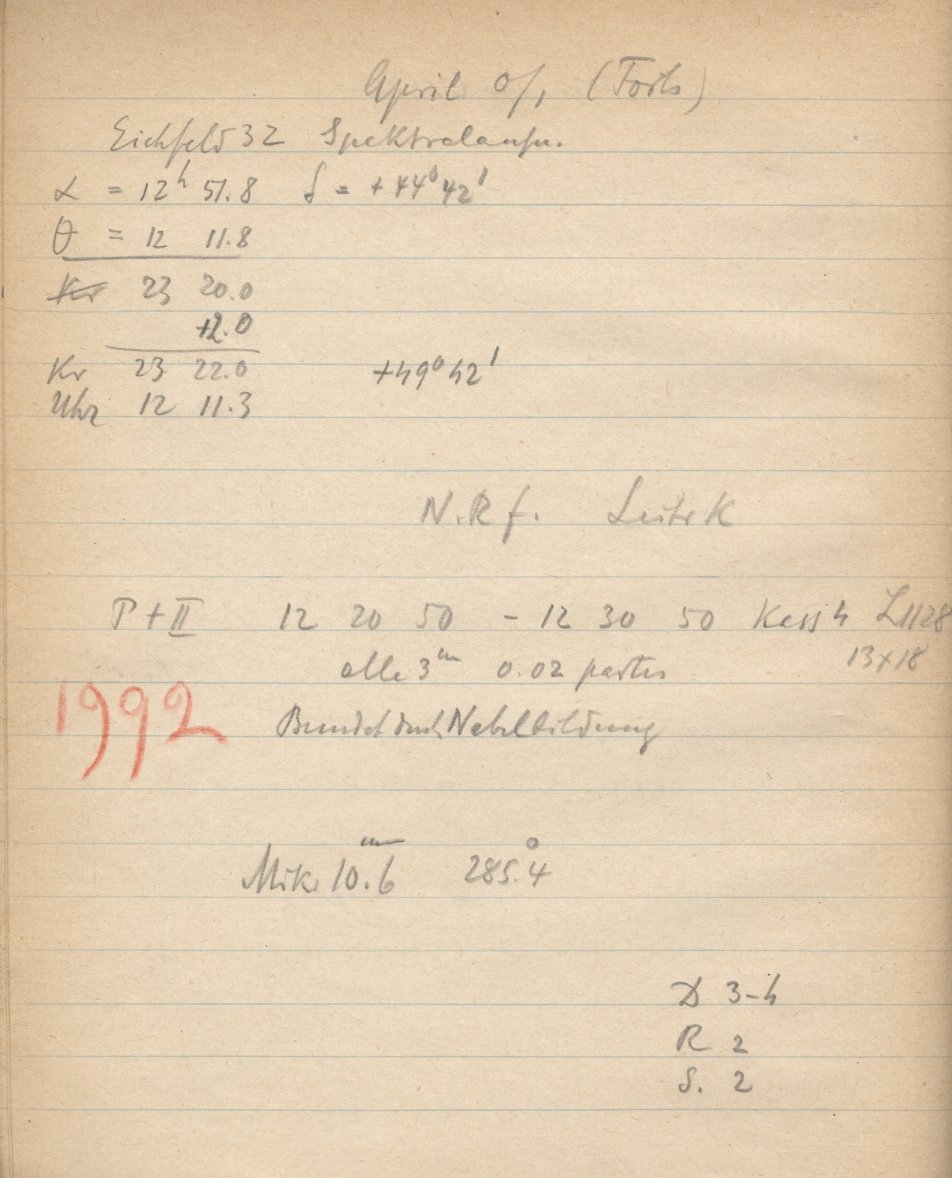 April 0/1 (Forts)
Eichfeld 32 Spektralaufn.
α = 12h 51.8 δ = +44° 42'
θ = 12 11.8
Kr 23 20.0
+2.0
Kr 23 22.0 +49° 42'
Uhr 12 11.3
N.R f. Leitr K
P + II 12 20 50 - 12 30 50 Kass 4 Z 1128
alle 3m 0.02 partes 13x18
1992 Nebelbildung
Mik. 10.6 285.4°
D 3-4
R 2
S. 2